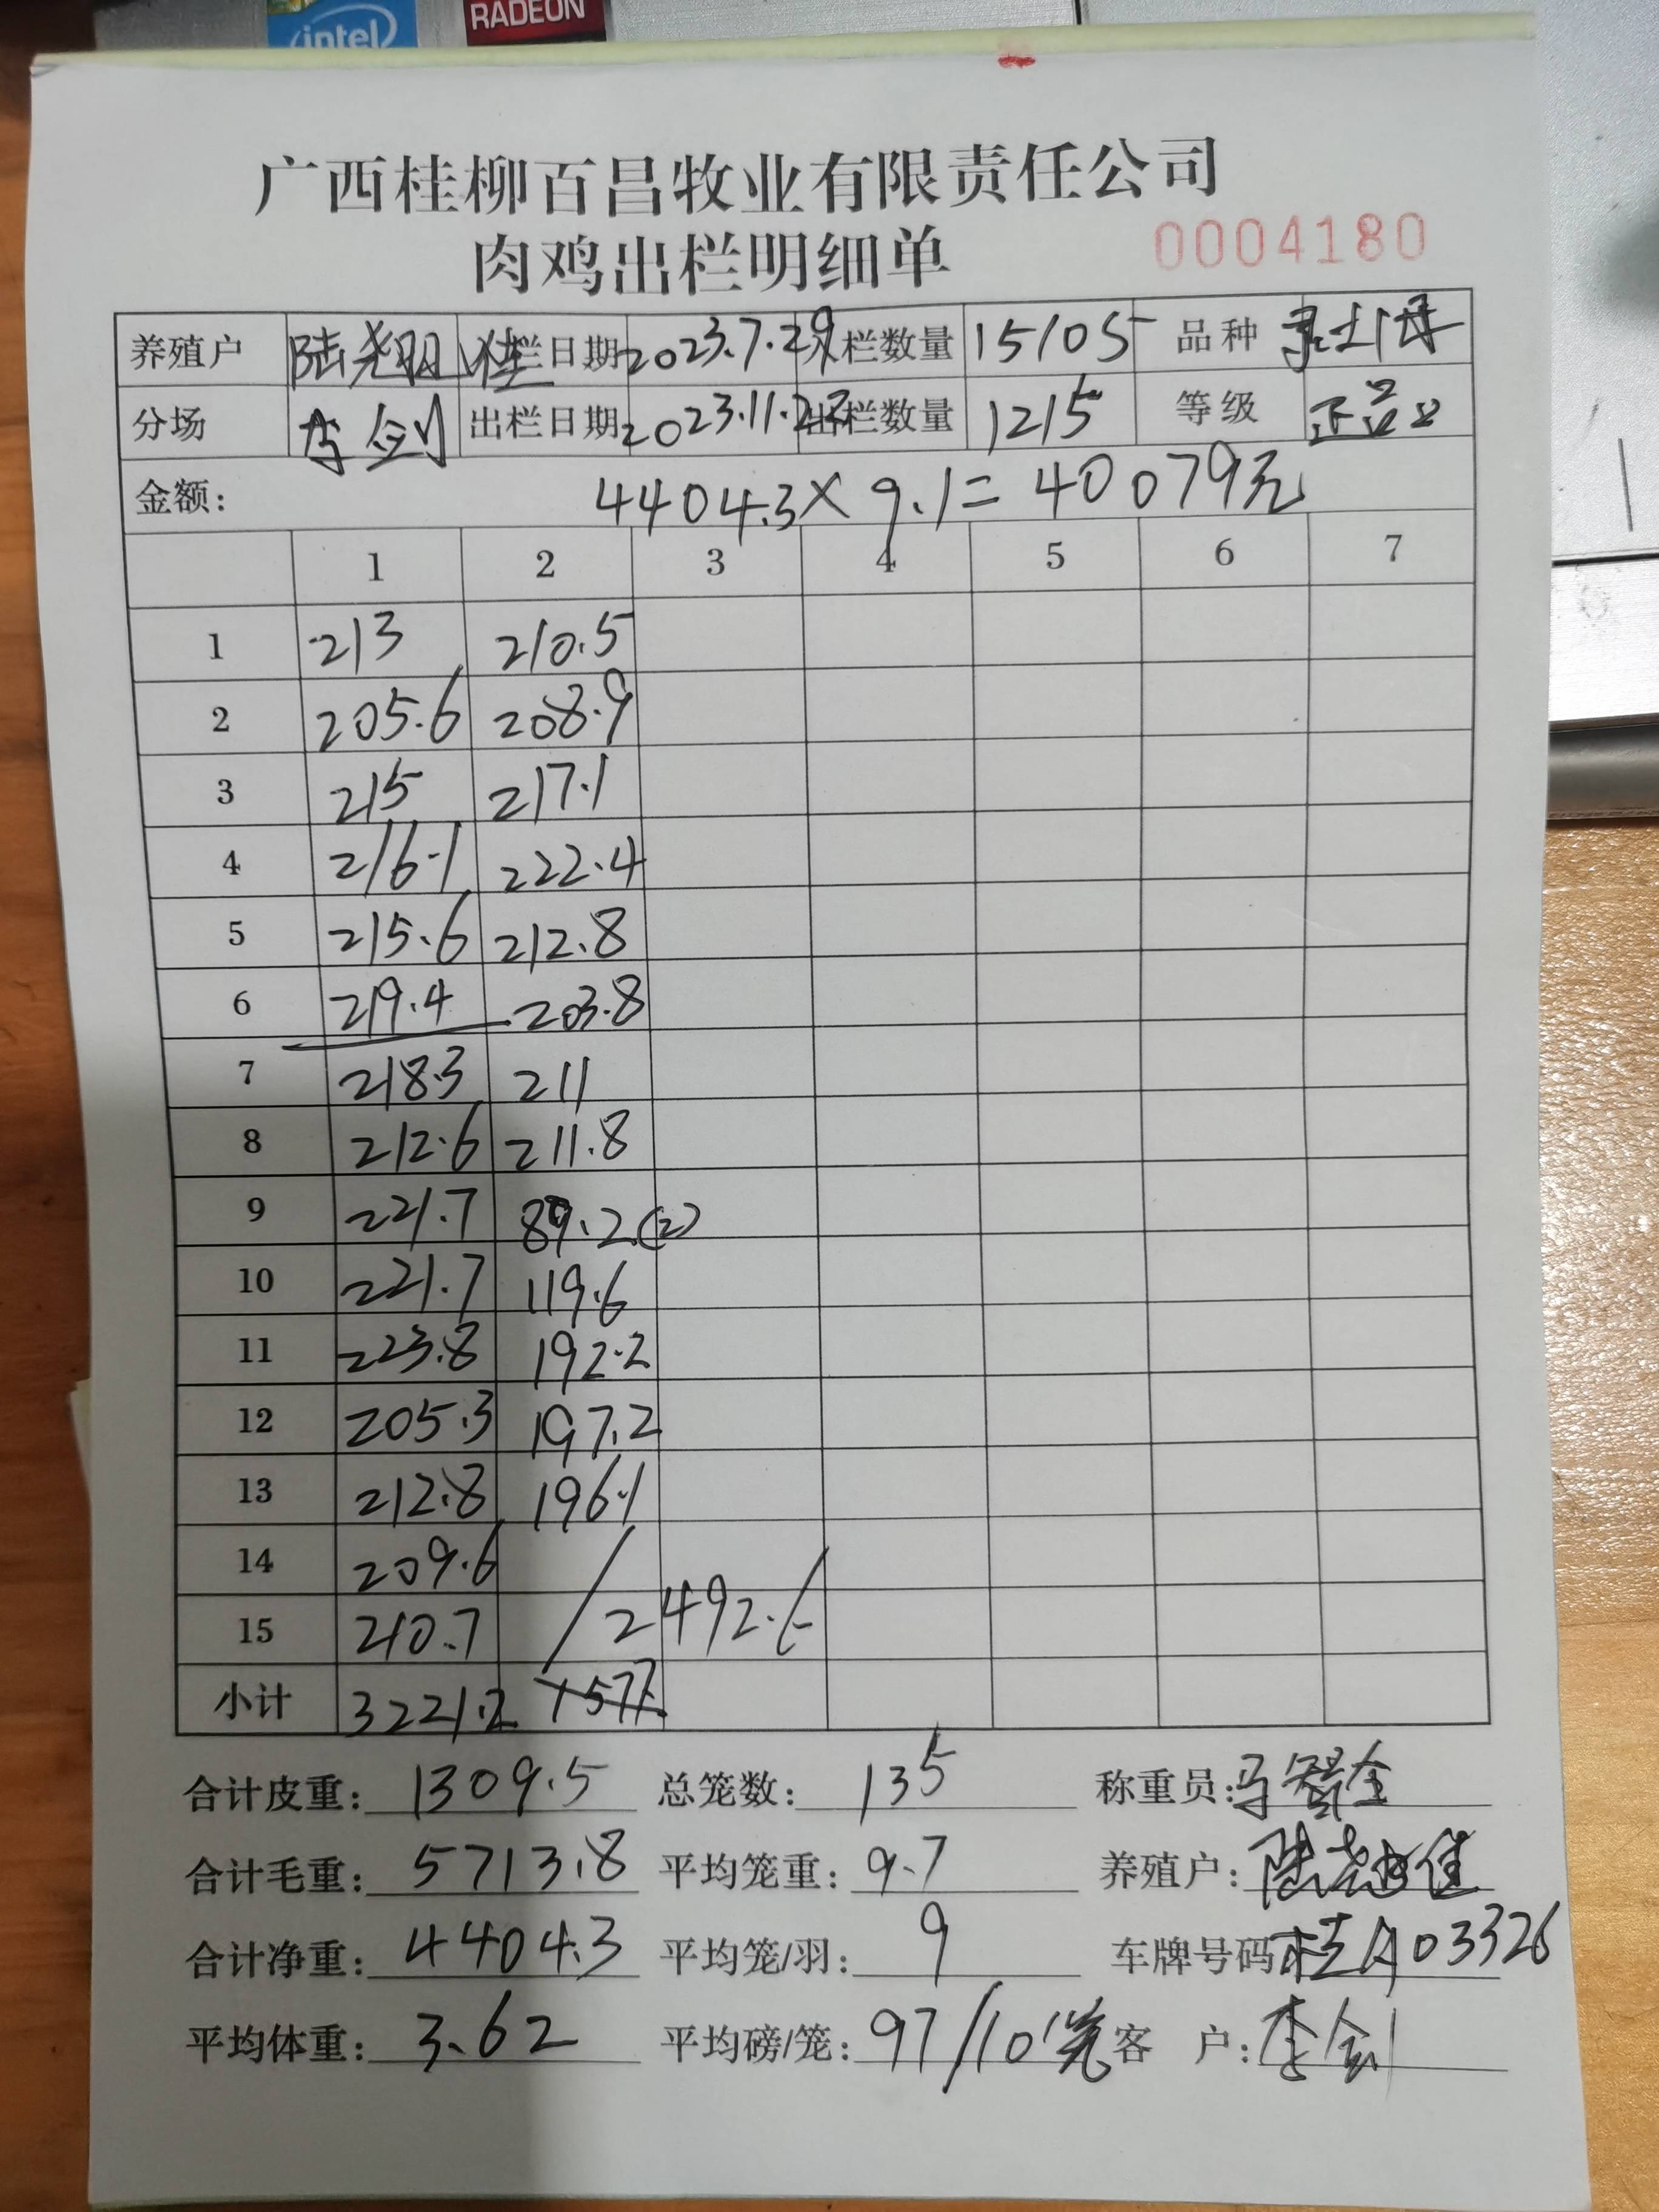 intel
RADEON
广西桂柳百昌牧业有限责任公司
肉鸡出栏明细单 0004180
养殖户 陆尧 佳 入栏日期 2023.7.29 入栏数量 15105 品种
分场 李剑 出栏日期 2023.11.23 出栏数量 1215 等级 正品
金额: 4404.3×9.1=40079元
1 2 3 4 5 6 7
1 213 210.5
2 205.6 208.9
3 215 217.1
4 216.1 222.4
5 215.6 212.8
6 219.4 203.8
7 218.3 211
8 212.6 211.8
9 221.7 89.2(2)
10 221.7 119.6
11 223.8 192.2
12 205.3 197.2
13 212.8 196.1
14 209.6
15 210.7 2492.6
小计 3221.2
合计皮重: 1309.5 总笼数: 135 称重员: 马智全
合计毛重: 5713.8 平均笼重: 9.7 养殖户: 陆尧 佳
合计净重: 4404.3 平均笼/羽: 9 车牌号码 桂A03326
平均体重: 3.62 平均磅/笼: 97/10笼 客 户: 李剑